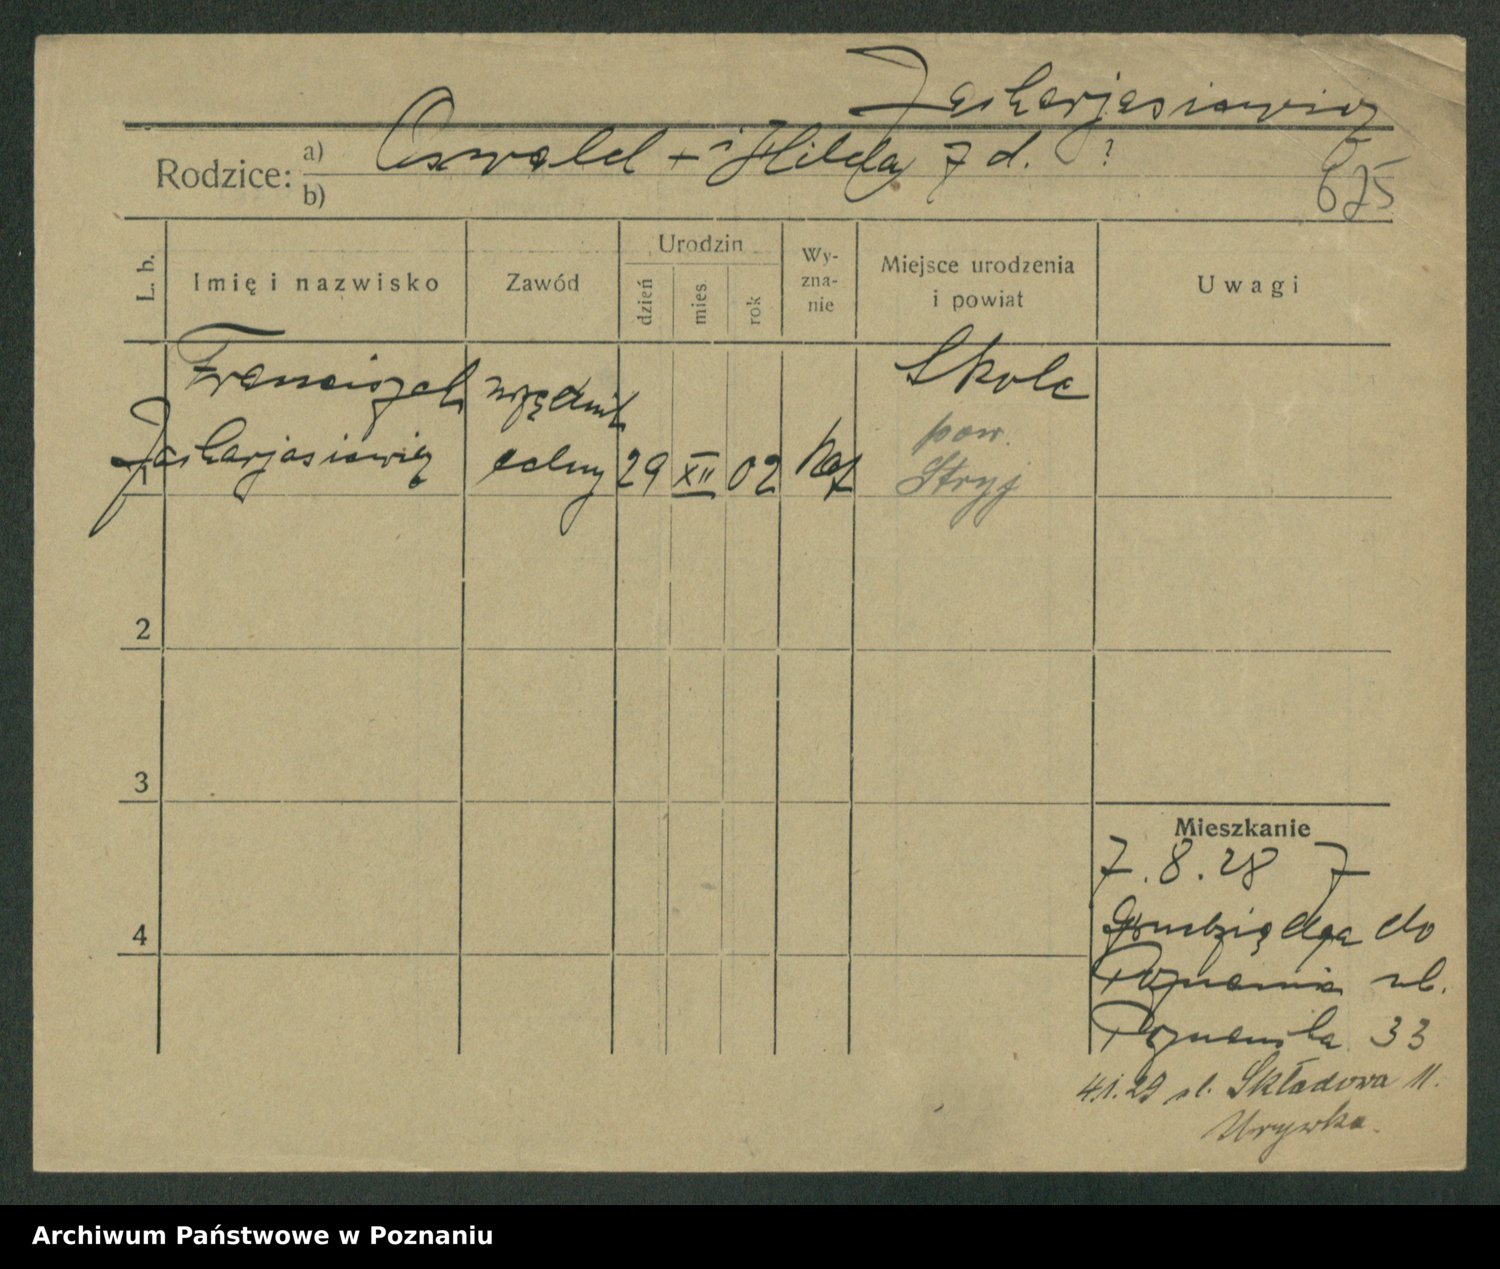 Zacharjasiewicz
Rodzice: a) Oswald + i Hilda z d. ?
b)
675
L. b. Imię i nazwisko Zawód Urodzin dzień mies rok Wy-zna-nie Miejsce urodzenia i powiat Uwagi
Franciszek urzędnik Skole
pow.
1 Zacharjasiewicz celny 29 XII 02 Kat Stryj
2
3
4
Mieszkanie
7.8.28 z
Grudziądza do
Poznania ul.
Poznańska 33
4.1.29 ul. Składowa 11.
Urywka.
Archiwum Państwowe w Poznaniu